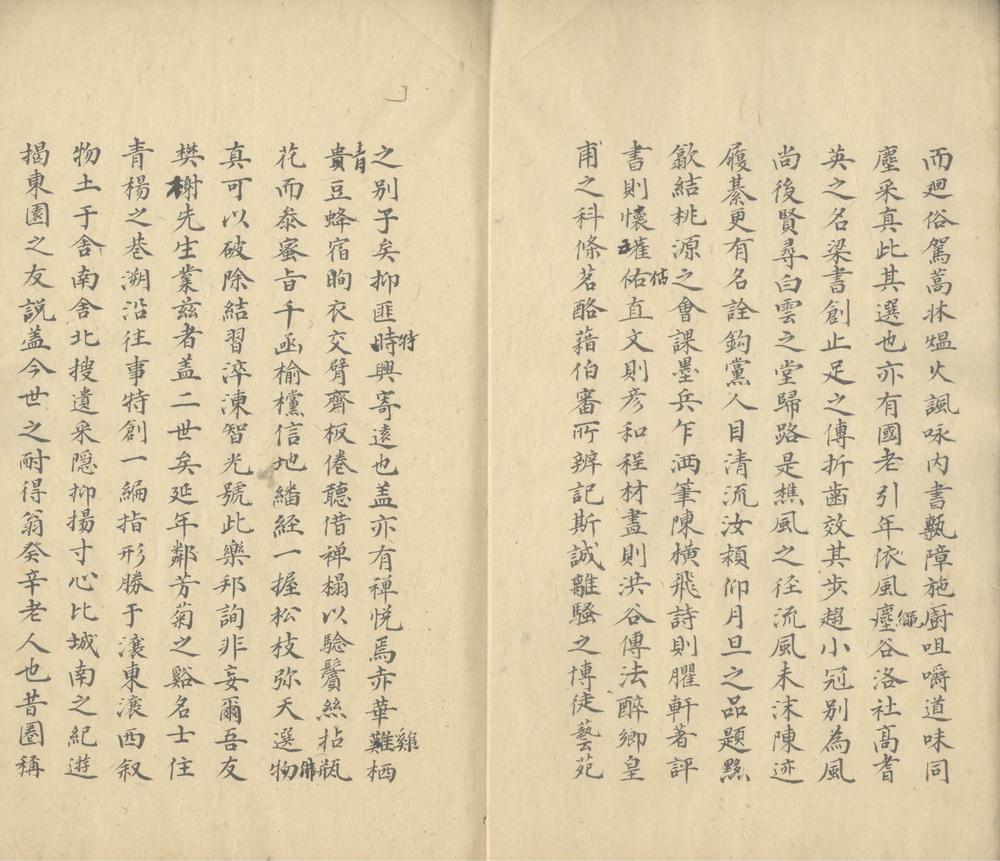 而廻俗駕蒿牀煴火諷咏内書甎障施廚咀嚼道味同
塵采真此其選也亦有國老引年依風塵谷洛社髙耆
繩
英之名梁書創止足之傳折齒效其步趨小冠别為風
尚後賢尋白雲之堂歸路是樵風之径流風未沫陳迹
履綦更有名詮鈎黨人目清流汝潁仰月旦之品題黟
歙結桃源之會課墨兵乍洒筆陳横飛詩則臞軒著評
書則懷瓘佑直文則彦和程材畫則洪谷傳法醉鄉皇
估
甫之科條茗酪藉伯審所辨記斯誠離騷之博徒藝苑
之别子矣抑匪時興寄遠也盖亦有禅悦焉赤華難栖
特
雞
貴豆蜂宿眴衣交臂齋板倦聽借禅榻以驗鬢絲拈瓶
青
花而叅蜜旨千函榆欓信地繙經一握松枝弥天選物
真可以破除結習淬湅智光號此樂邦詢非妄爾吾友
樊榭先生業兹者盖二世矣延年鄰芳菊之谿名士住
青楊之巷溯沿往事特創一編指形勝于瀼東瀼西叙
物土于舍南舍北搜遺采隠抑揚寸心比城南之紀遊
揭東園之友説盖今世之耐得翁癸辛老人也昔圏稱